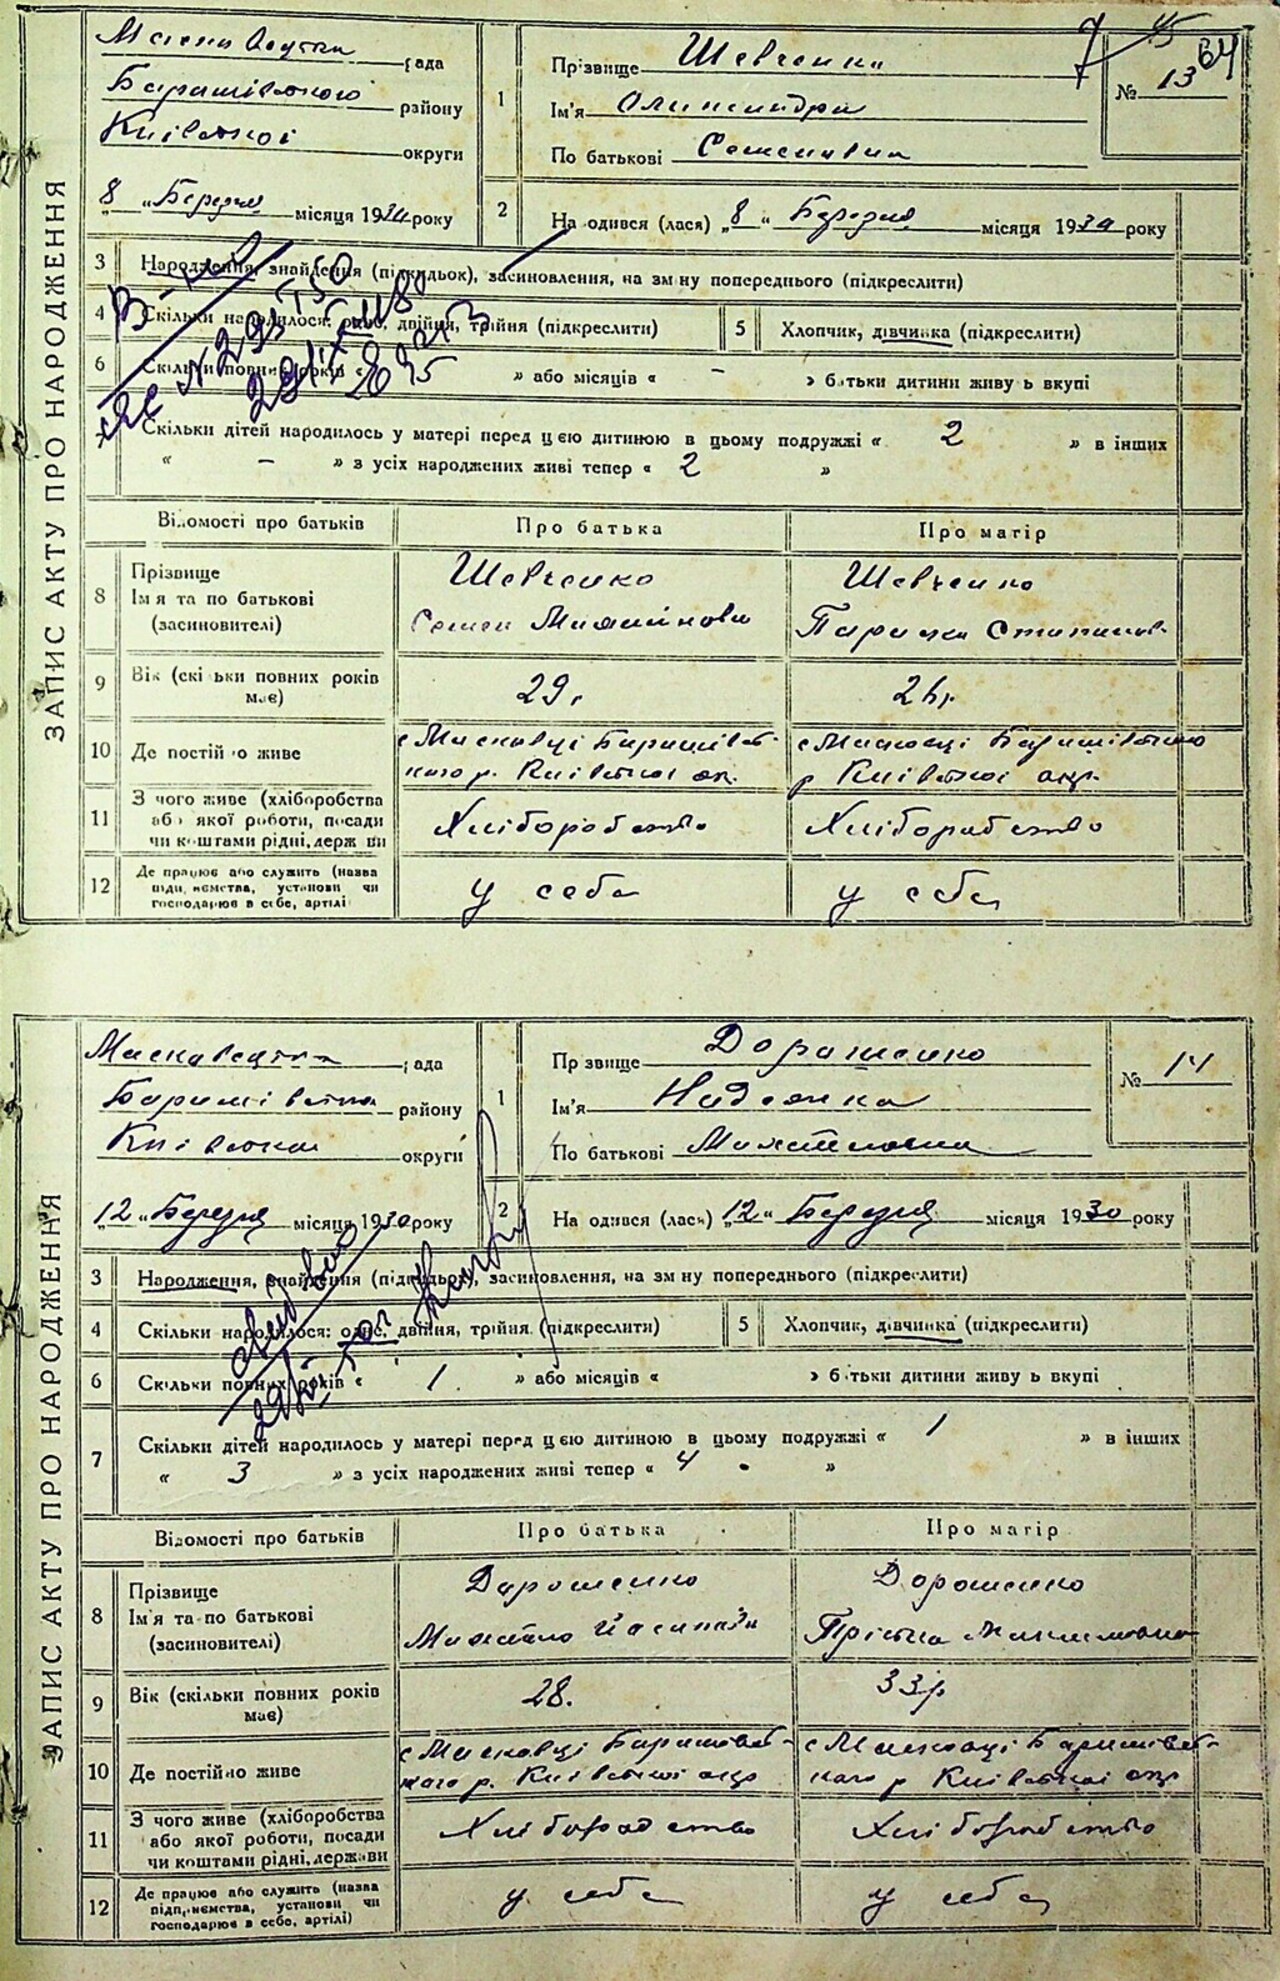 ЗАПИС АКТУ ПРО НАРОДЖЕННЯ
рада
Баришівського району
Київської округи
„8„ Березня місяця 1930 року
1 Прізвище Шевченко
Ім'я Олександра
По батькові Семенівна
№ 13
64
2 На одився (лася) „8„ Березня місяця 1930 року
3 Народження, знайдення (підкидьок), засиновлення, на зм ну попереднього (підкреслити)
4 Скільки народилося: одно, двійня, трійня (підкреслити) 5 Хлопчик, дівчинка (підкреслити)
6 Скільки повних років « » або місяців « – » батьки дитини живу ь вкупі
Скільки дітей народилось у матері перед цією дитиною в цьому подружжі « 2 » в інших
« – » з усіх народжених живі тепер « 2 »
Відомості про батьків Про батька Про матір
8 Прізвище Ім я та по батькові (засиновителі) Шевченко Семен Шевченко
9 Вік (скі ьки повних років має) 29 р 26 р.
10 Де постій о живе с Масківці Баришівського р. Київської ок. с Масківці Баришівського р Київської окр.
11 З чого живе (хліборобства або якої роботи, посади чи коштами рідні, держ ви Хліборобство Хліборобство
12 Де працює або служить (назва підп, иємства, установи чи господарює в себе, артілі у себе у себе
ЗАПИС АКТУ ПРО НАРОДЖЕННЯ
Масковецька рада
Баришівська району
Київська округи
„12„ Березня місяця 1930 року
1 Пр звище Дорошенко
Ім'я
По батькові Михайловна
№ 14
2 На одився (лася) „12„ Березня місяця 1930 року
3 Народження, знайдення (підкидьок), засиновлення, на зм ну попереднього (підкреслити)
4 Скільки народилося: одно, двійня, трійня (підкреслити) 5 Хлопчик, дівчинка (підкреслити)
6 Скільки повних років « 1 » або місяців « » батьки дитини живу ь вкупі
7 Скільки дітей народилось у матері перед цією дитиною в цьому подружжі « 1 » в інших
« 3 » з усіх народжених живі тепер « 4 »
Відомості про батьків Про батька Про матір
8 Прізвище Ім'я та по батькові (засиновителі) Дорошенко Михайло Дорошенко
9 Вік (скільки повних років має) 28. 33р
10 Де постійно живе с Масковці Баришівського р. Київської окр с Масковці Баришівського р Київської окр
11 З чого живе (хліборобства або якої роботи, посади чи коштами рідні, держави Хліборобство Хліборобство
12 Де працює або служить (назва підприємства, установи чи господарює в себе, артілі) у себе у себе